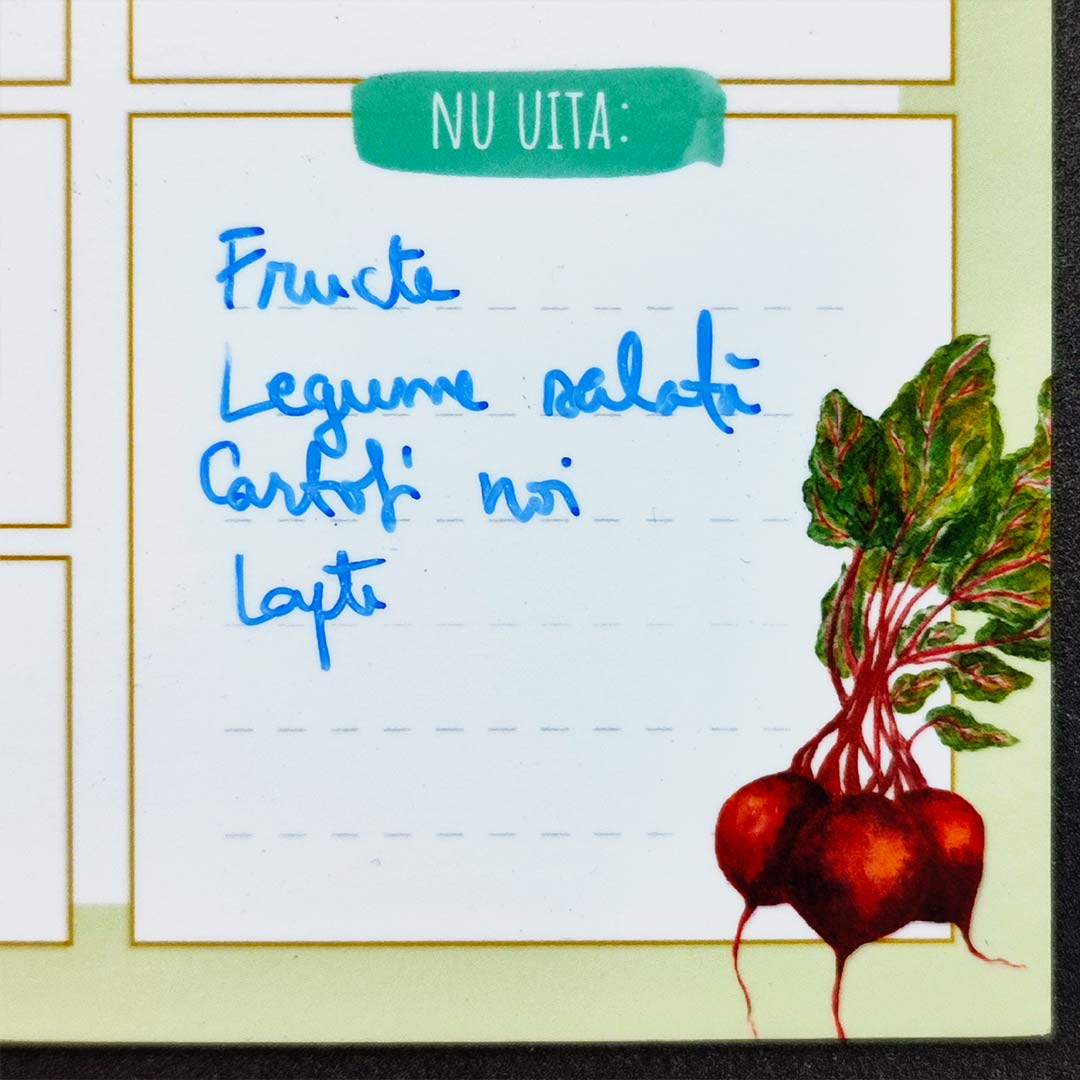 NU UITA:
Fructe
Legume salată
Cartofi noi
Lapte